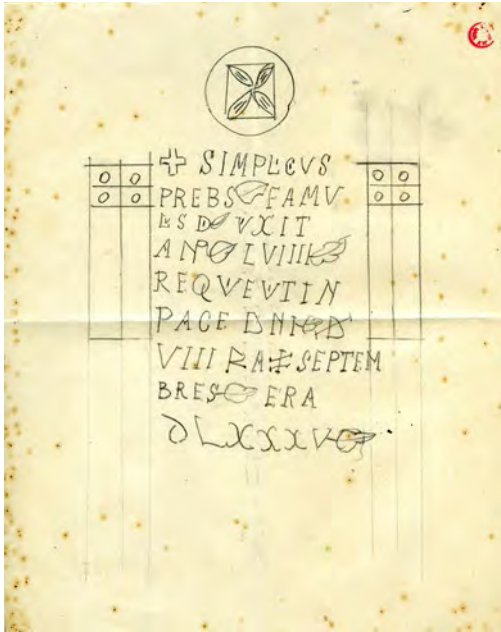 SIMPLCVS
PREBS FAMV
LS D VXIT
AN LVIIII
REQVEVTIN
PACE DNI D
VIII KA SEPTEM
BRES ERA
DLXXXV